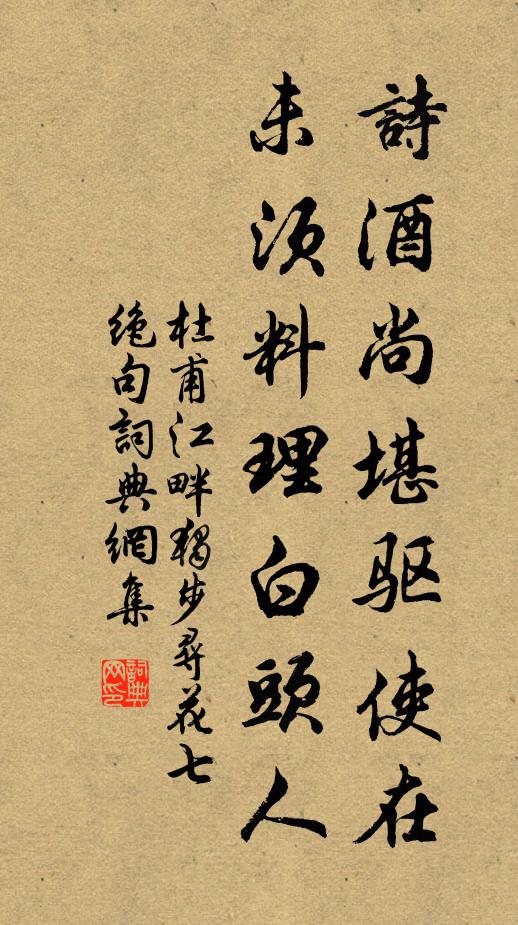 詩酒尚堪驱使在
未須料理白頭人
杜甫江畔獨步尋花七
绝句詞典網集
詞典
网印